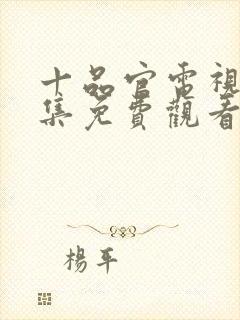 十品官電視
集免費觀看
楊平